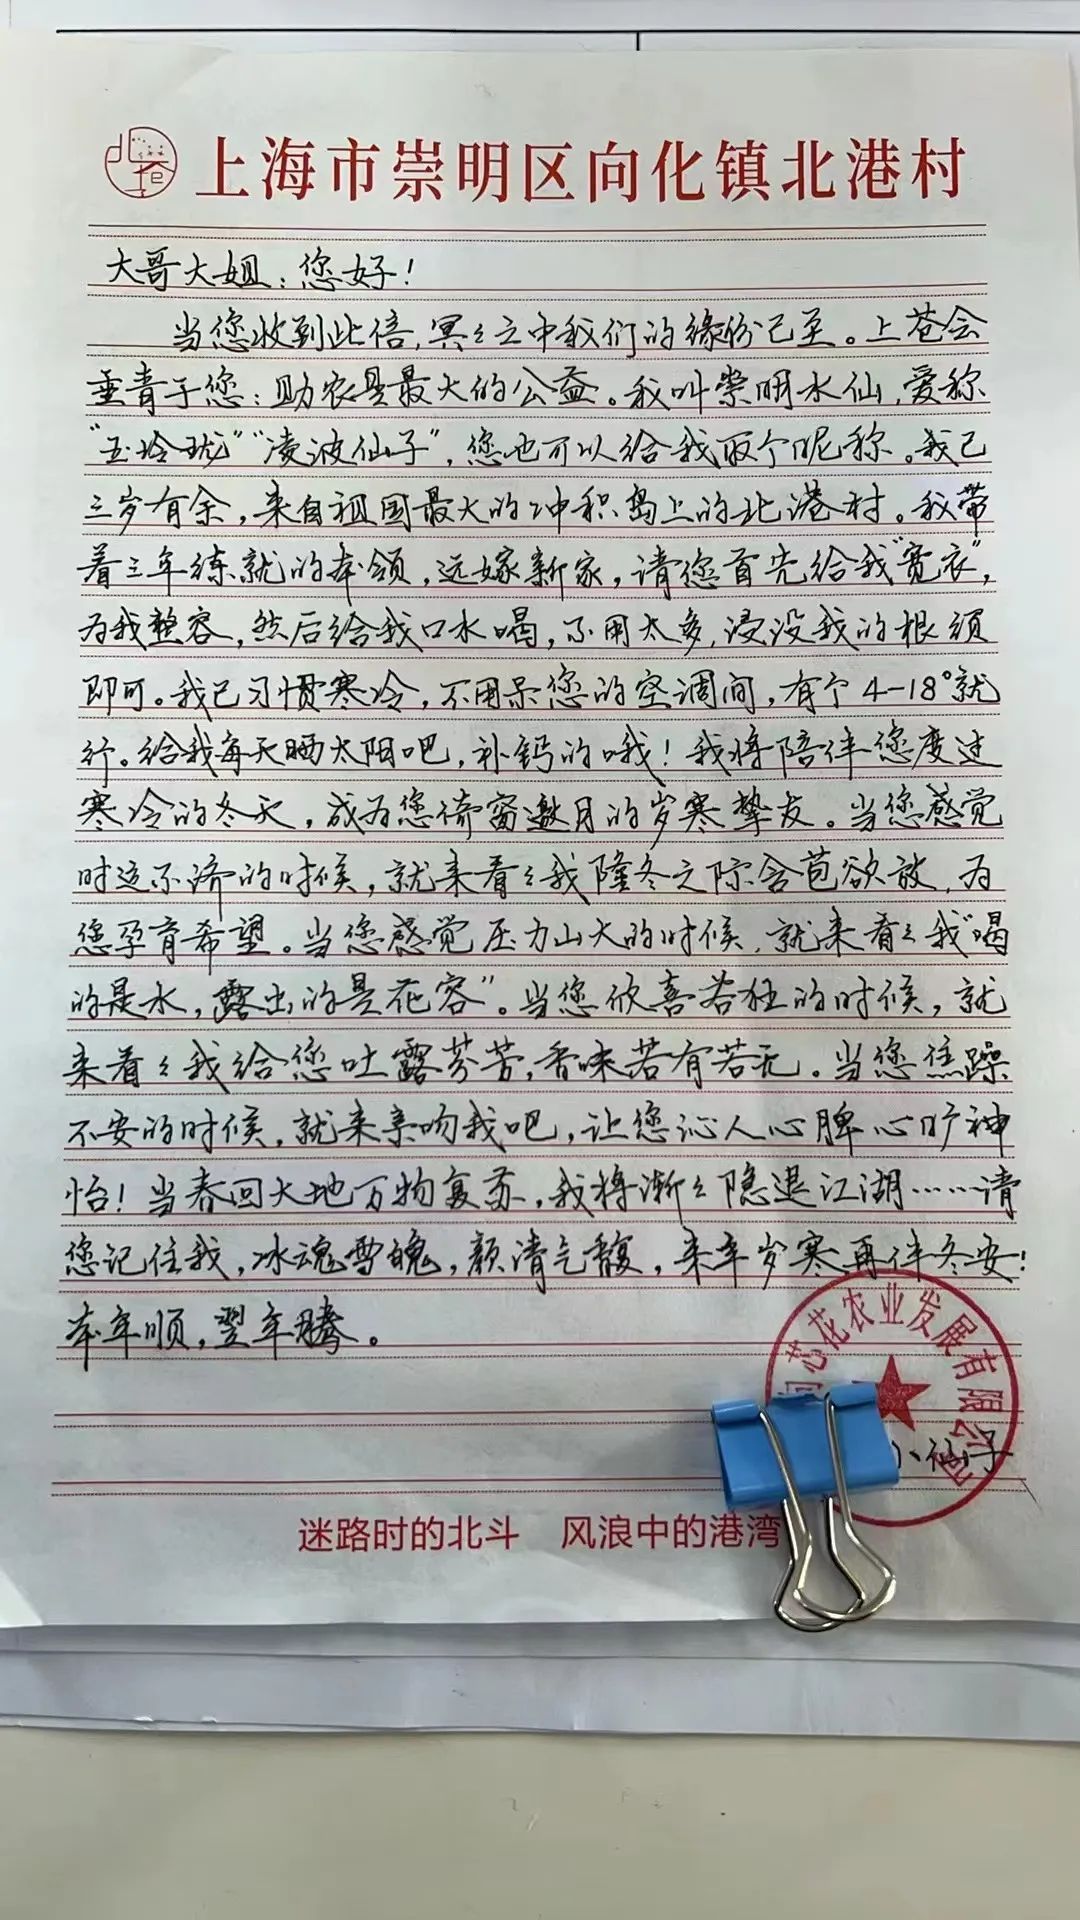 上海市崇明区向化镇北港村
大哥大姐：您好！
当您收到此信，冥々之中我们的缘份已至。上苍会
垂青于您：助农是最大的公益。我叫崇明水仙，爱称
“玉玲珑”“凌波仙子”，您也可以给我取个昵称。我已
三岁有余，来自祖国最大的冲积岛上的北港村。我带
着三年练就的本领，远嫁新家，请您首先给我“宽衣”，
为我整容，然后给我口水喝，不用太多，浸没我的根须
即可。我已习惯寒冷，不用呆您的空调间，有个4-18°就
行。给我每天晒太阳吧，补钙的哦！我将陪伴您度过
寒冷的冬天，成为您倚窗邀月的岁寒挚友。当您感觉
时运不济的时候，就来看々我隆冬之际含苞欲放，为
您孕育希望。当您感觉压力山大的时候，就来看々我“喝
的是水，露出的是花容”。当您欣喜若狂的时候，就
来看々我给您吐露芬芳，香味若有若无。当您焦躁
不安的时候，就来亲吻我吧，让您沁人心脾心旷神
怡！当春回大地万物复苏，我将渐々隐退江湖……请
您记住我，冰魂雪魄，颜清气馥，来年岁寒再伴冬安！
本年顺，翌年腾。
芯花农业发展有限公司
小仙子
迷路时的北斗 风浪中的港湾